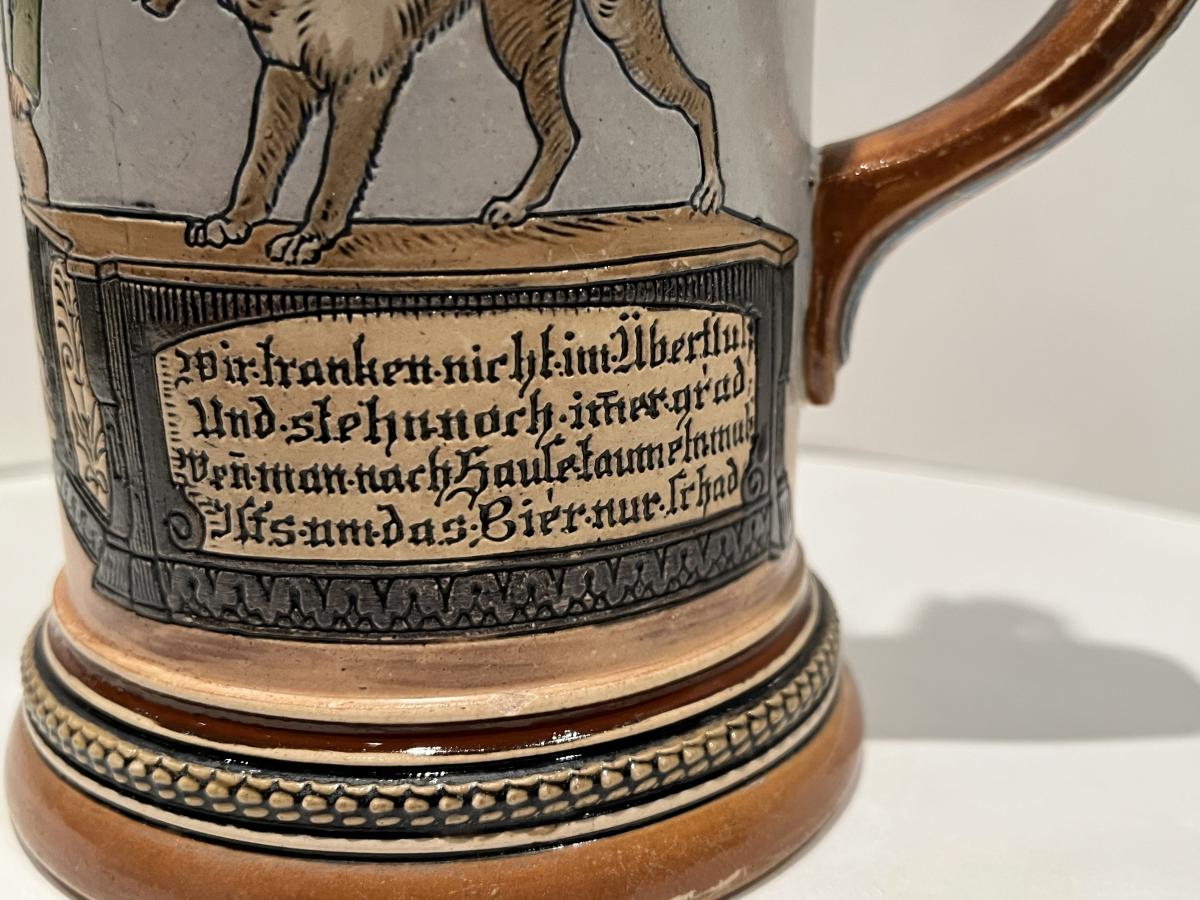 wir·tranken·nicht·im·Überfluß
Und·stehn·noch·im̄er·grad,
Wen̄·man·nach Hause taumeln muß
Ists·um·das·Bier·nur·schad